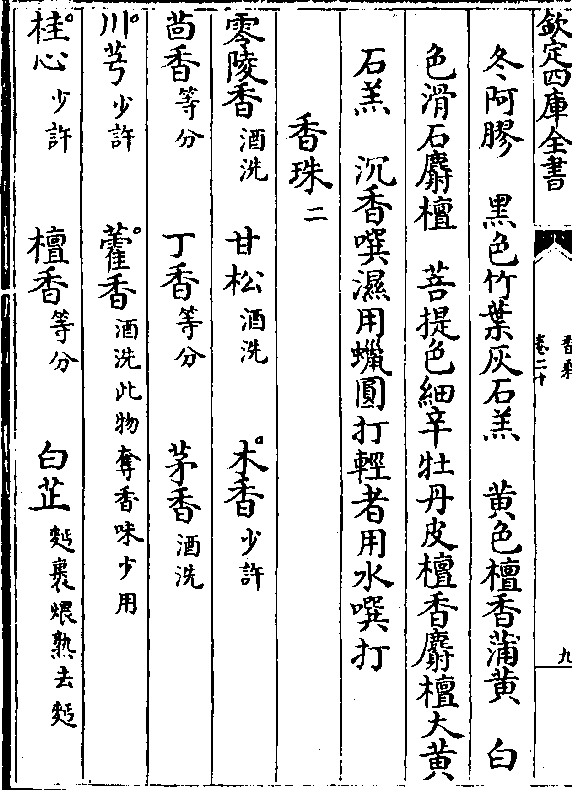 欽定四庫全書
香乘
卷二十
九
冬阿膠　黑色竹葉灰石羔　黄色檀香蒲黄　白
色滑石麝檀　菩提色細辛牡丹皮檀香麝檀大黄
石羔　沉香噀濕用蠟圓打輕者用水噀打
香珠二
零陵香酒洗　甘松酒洗　木香少許
茴香等分　丁香等分　茅香酒洗
川芎少許　藿香酒洗此物奪香味少用
桂心少許　檀香等分　白芷麫裹煨熟去麫